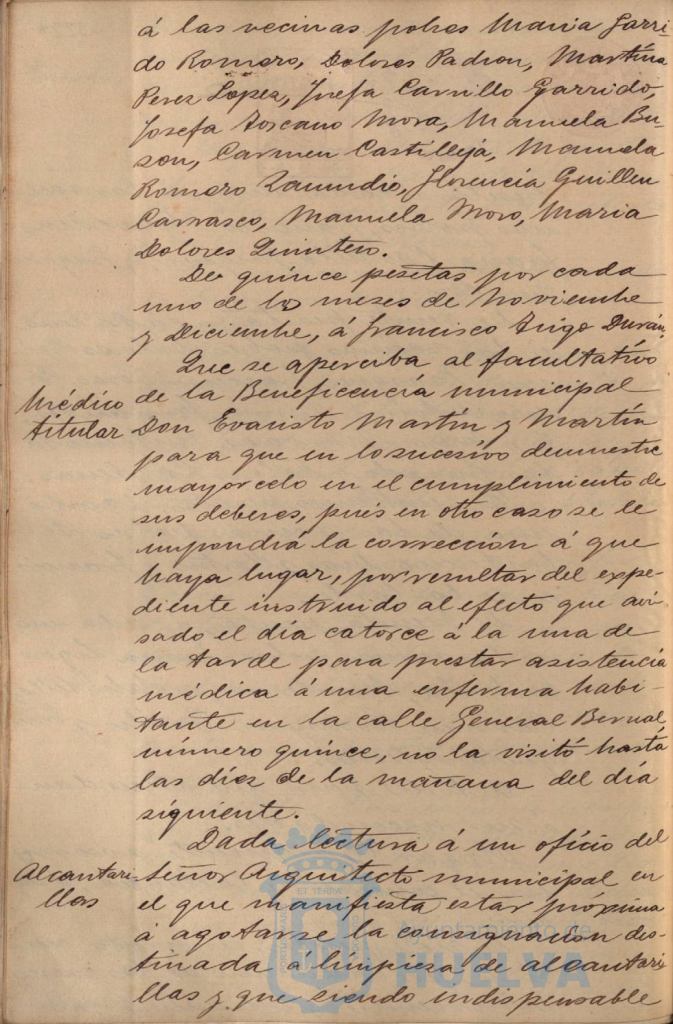 á las vecinas pobres Maria Garri-
do Romero, Dolores Padron, Martina
Perez Lopez, Josefa Carrillo Garrido,
Josefa Toscano Mora, Manuela Bu-
zon, Carmen Castilleja, Manuela
Romero Zamudio, Florencia Guillen
Carrasco, Manuela Moro, Maria
Dolores Quintero.
De quince pesetas por cada
uno de los meses de Noviembre
y Diciembre, á Francisco Trigo Durán.
Que se aperciba al facultativo
Médico
titular
de la Beneficencia municipal
Don Evaristo Martín y Martín
para que en lo sucesivo demuestre
mayor celo en el cumplimiento de
sus deberes, pués en otro caso se le
impondrá la corrección á que
haya lugar, por resultar del expe-
diente instruido al efecto que avi-
sado el día catorce á la una de
la tarde para prestar asistencia
médica á una enferma habi-
tante en la calle General Bernal,
número quince, no la visitó hasta
las diez de la mañana del día
siguiente.
Dada lectura á un oficio del
Alcantari-
llas
Señor Arquitecto municipal en
el que manifiesta estar próxima
á agotarse la consignación des-
tinada á limpieza de alcantari-
llas y que siendo indispensable
Ayuntamiento de
HUELVA